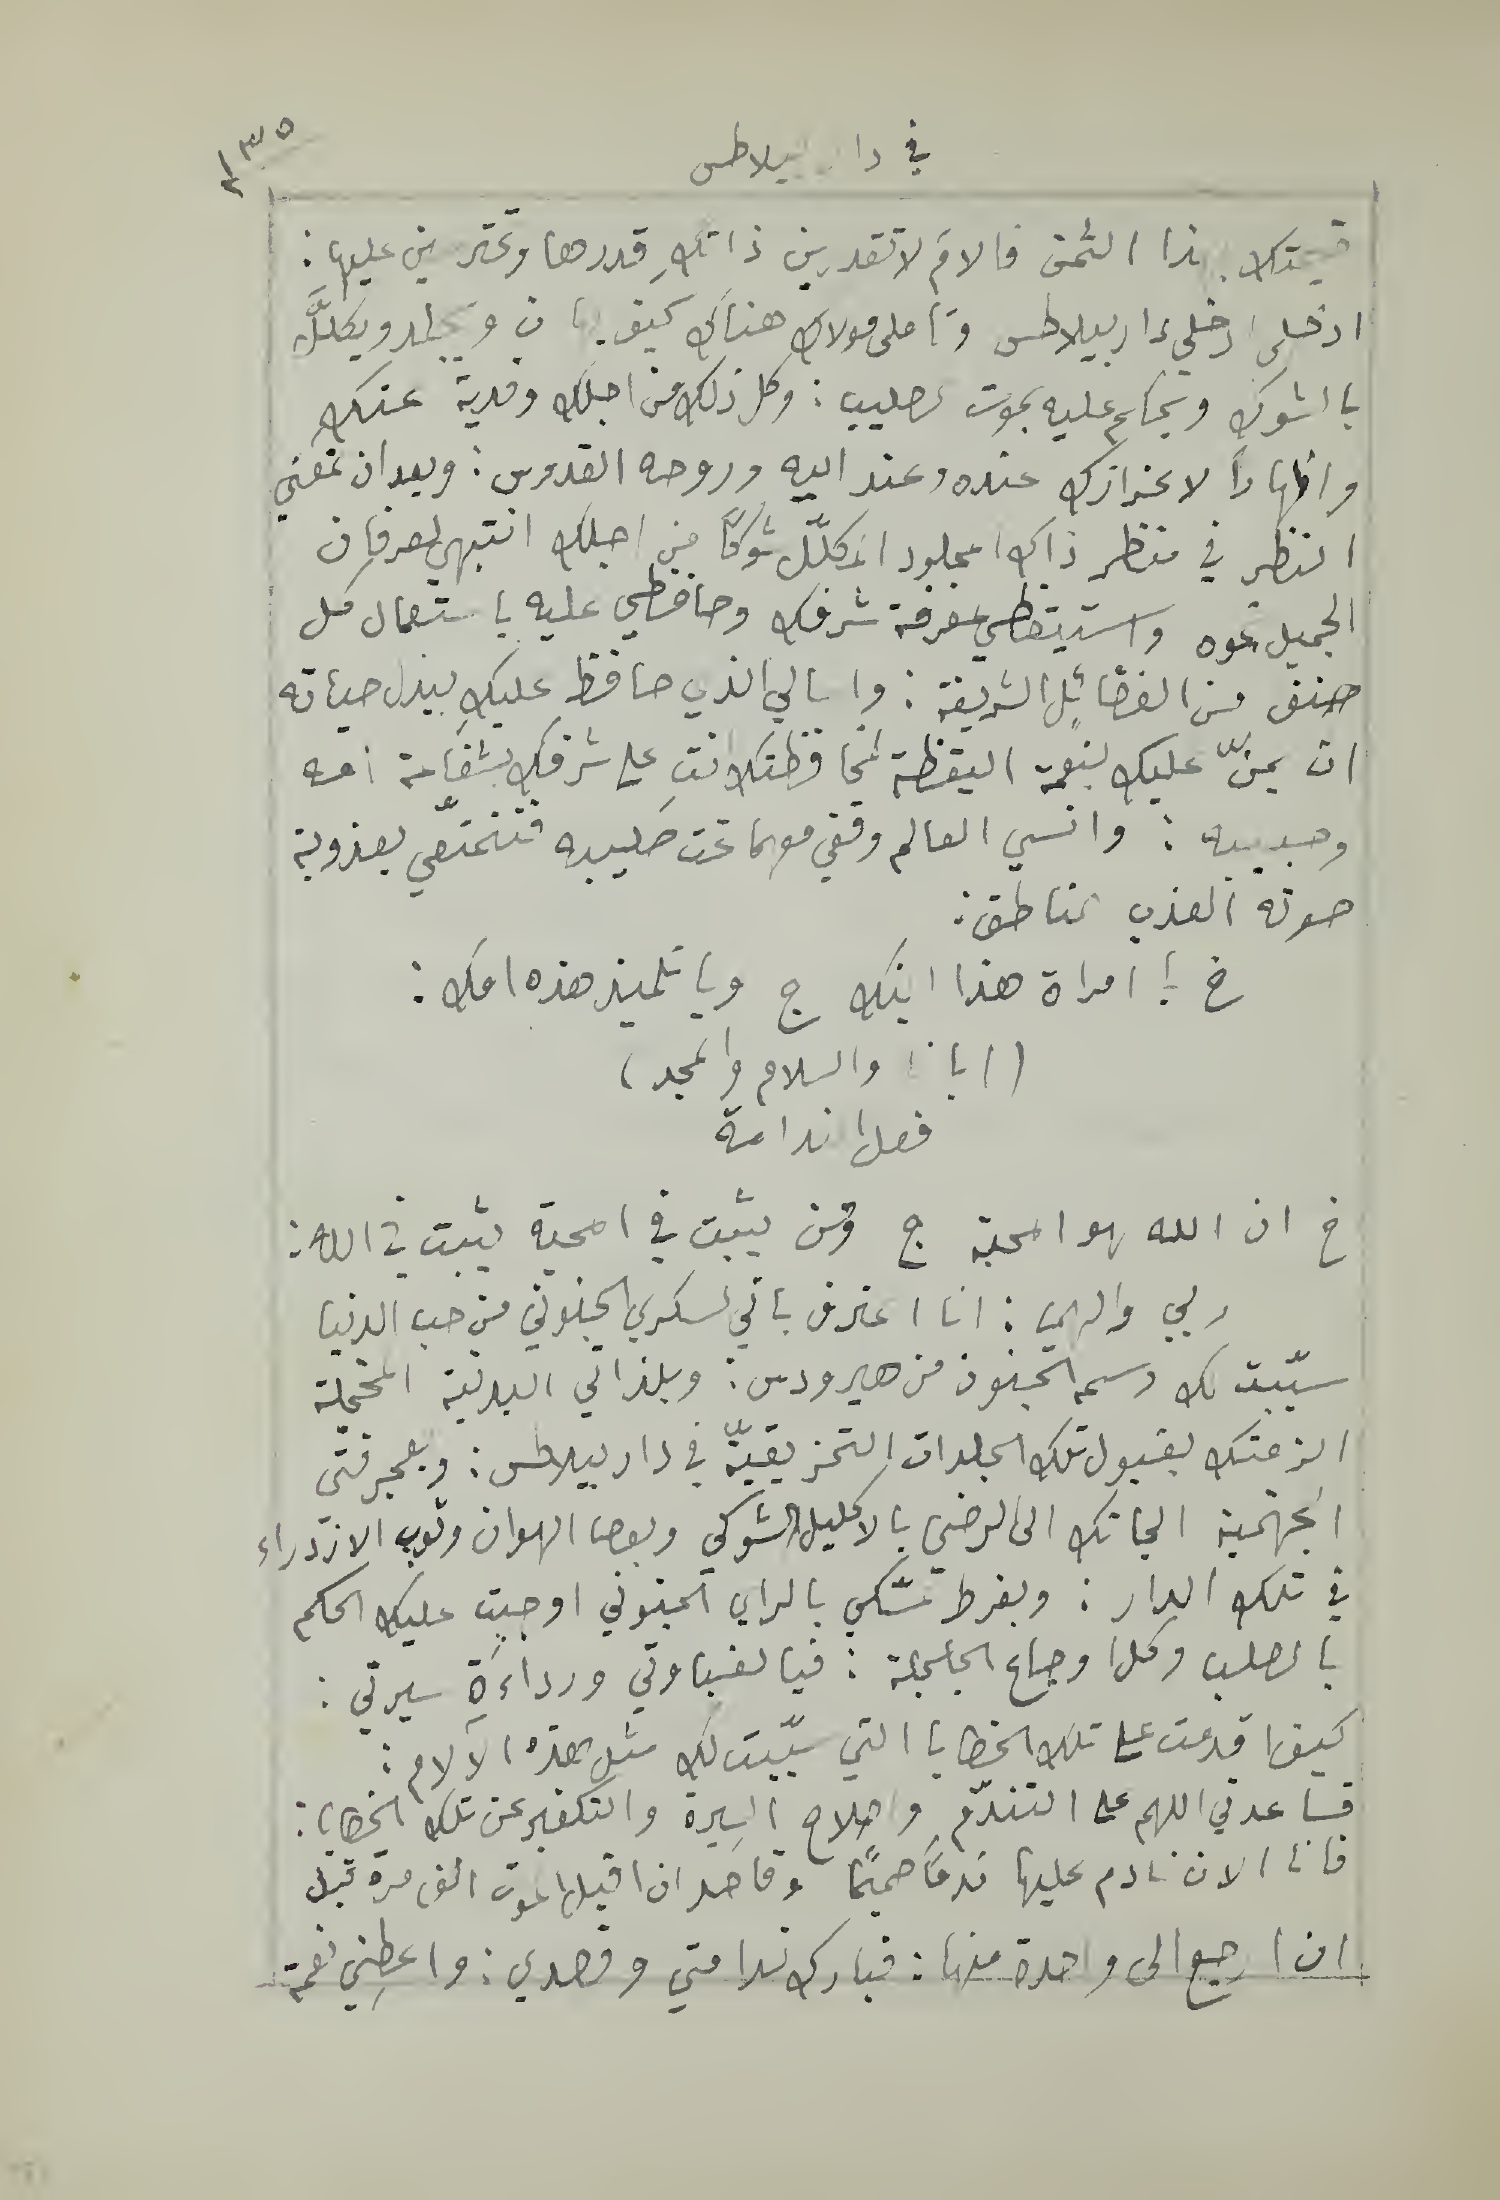 ٢٣٥
في دار بيلاطس
قيمتك بهذا الثمن فالامَ لا تقدرين ذاتكِ قدرها وتحترسين عليها :
ادخلي ادخلي دار بيلاطس وتاملي مولاك هناك كيف يهان ويجلد ويكلَّل
بالشوك ويحكم عليه بموت الصليب : وكل ذلك من اجلك وفدية عنكِ
واظهاراً لاعتزازك عنده وعند ابيه وروحه القدوس : وبعد ان تمعني
النظر في منظر ذاك المجلود المكلّل شوكاً من اجلك انتبهي لعرفان
الجميل نحوه واستيقظي لمعرفة شرفك وحافظي عليه باستعمال كل
صنف من الفضائل الشريفة : واسالي الذي حافظ عليكِ ببذل حياته
ان يمنّ عليك بنعمة اليقظة لمحافظتك انتِ على شرفك بشفاعة امه
وحبيبه : وانسي العالم وقفي معهما تحت صليبه فتتمتّعي بعذوبة
صوته العذب الناطق :
خ يا امراة هذا ابنك ج ويا تلميذ هذه امك :
(ابانا والسلام والمجد)
فعل الندامة
خ ان الله هو المحبة ج ومن يثبت في المحبة يثبت في الله :
ربي والهي : انا اعترف باني لسكري الجنوني من حب الدنيا
سبّبت لك وسمة الجنون من هيرودس : وبلذاتي البدنية المخجلة
الزمتك بقبول تلك الجلدات التمزيقيّة في دار بيلاطس : وبعجرفتي
الجهنمية الجاتك الى الرضى بالاكليل الشوكي وبعصا الهوان وثوب الازدراء
في تلك الدار : وبفرط تمسّكي بالراي الجنوني اوجبت عليك الحكم
بالصلب وكل اوجاع الجلجلة : فيا لغباوتي ورداءَةِ سيرتي :
كيف اقدمت على تلك الخطايا التي سبّبت لك مثل هذه الآلام :
فساعدني اللهم على التندّم واصلاح السيرة والتكفير عن تلك الخطايا :
فانا الان نادم عليها ندماً صميمًا وقاصد ان اقبل الموت الف مرة قبل
ان ارجع الى واحدة منها : فبارك ندامتي وقصدي : واعطِني نعمة